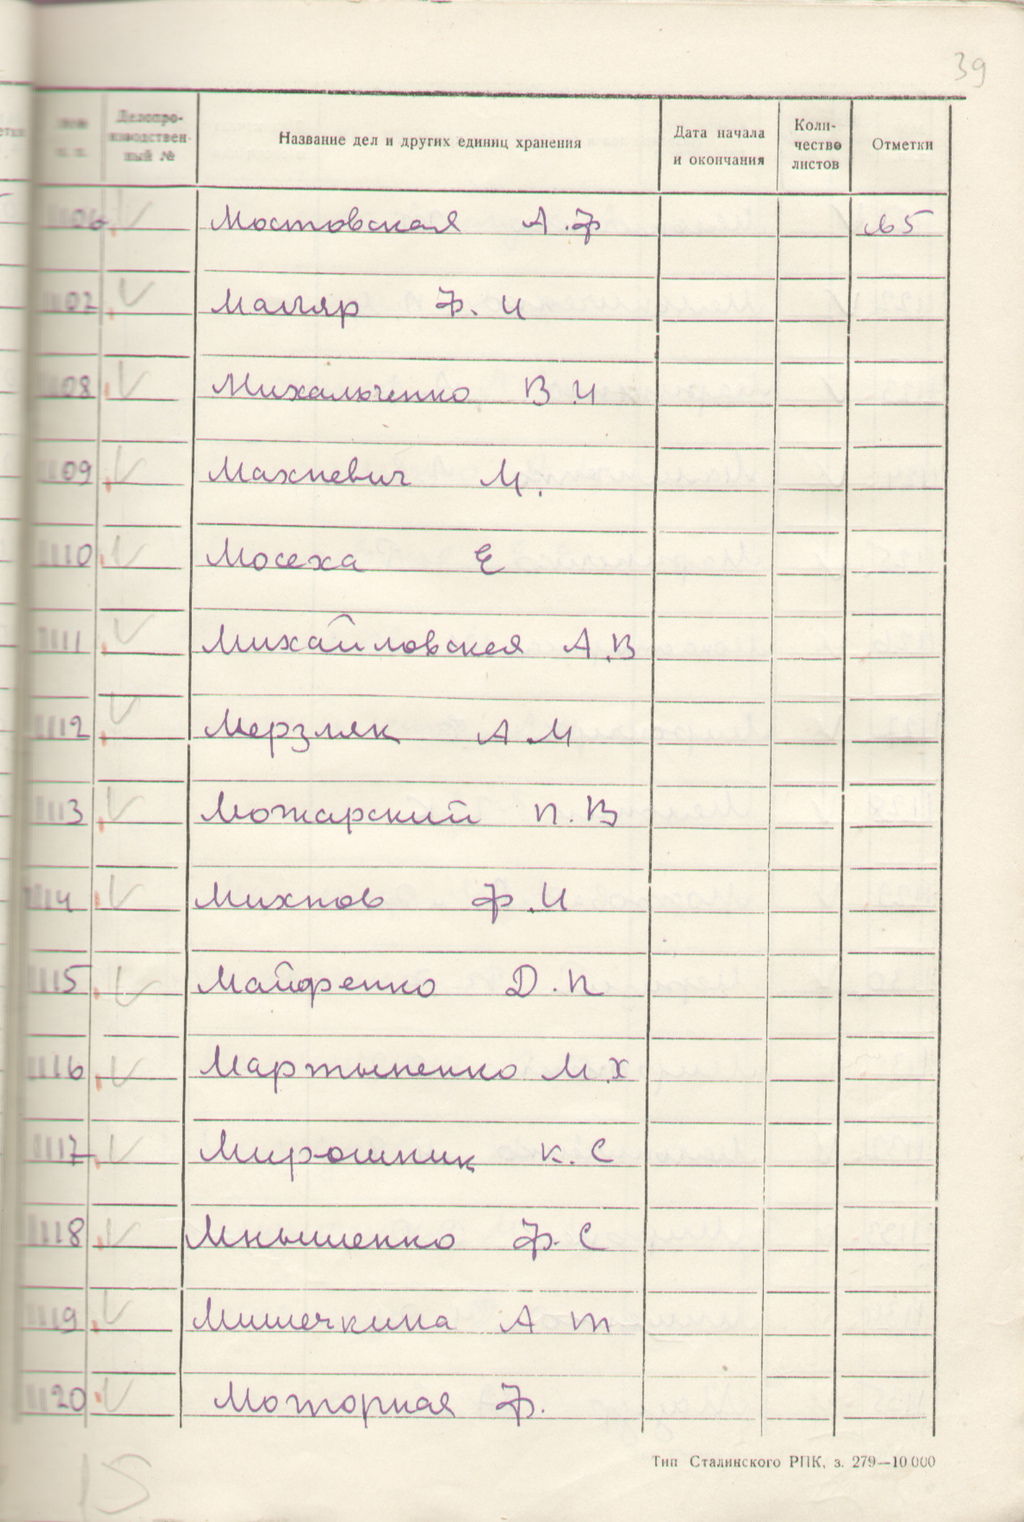 39
Делопро-
изводствен-
ный №
Название дел и других единиц хранения
Дата начала
и окончания
Коли-
чество
листов
Отметки
06 Мостовская А.Ф
07 Маляр Ф.И
08 Михальченко В.И
09 Махневич М.
1110 Мосеха Е
1111 Михайловская А.В
1112 Мерзляк А М
1113 Можарский П.В
1114 Михнов Ф.И
1115 Майфренко Д.П
1116 Мартыненко М.Х
1117 Мирошник К.С
1118 Мнышенко Ф.С
1119 Мишечкина А Т
1120 Моторная Ф.
Тип Сталинского РПК, з. 279—10 000
15